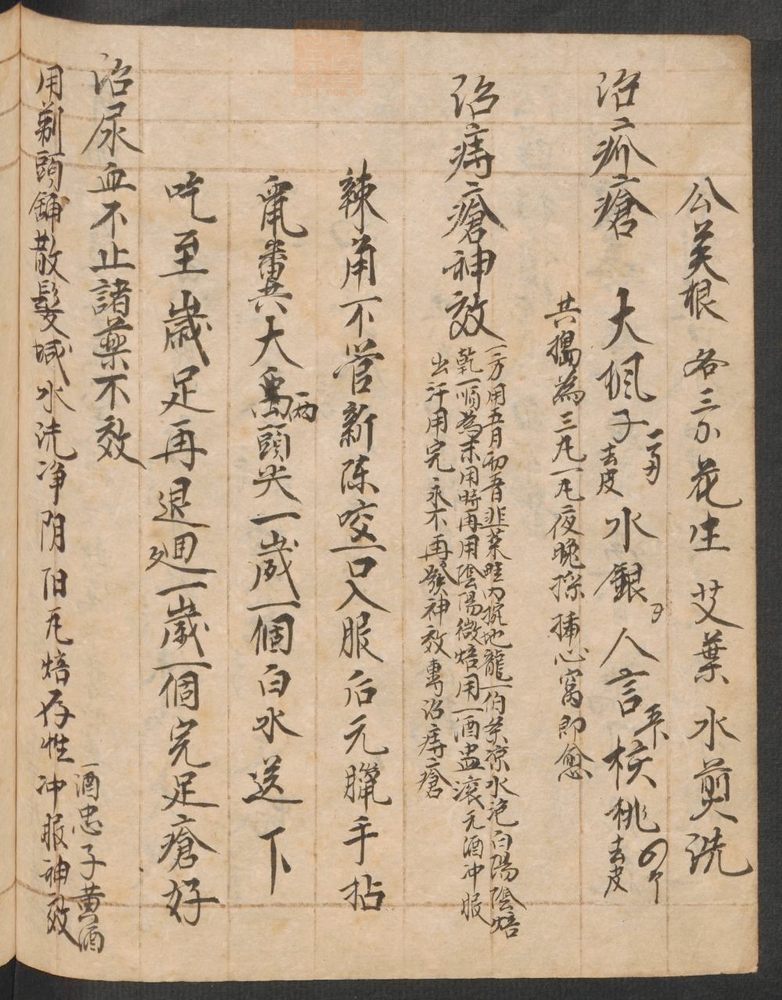 公英根 各三分 花生 艾葉 水煎洗
治疥瘡 大楓子去皮 水銀 人言 核桃去皮
共搗為三丸一丸夜晚搽擂心窩即愈
治痔瘡神效 一方用五月初五日韭菜畦内挖地龍一伯英凉水泡白陽陰焙
乾一順為末用時再用陰陽微焙用一酒盅滚元酒冲服
出汗用完永不再發神效專治痔瘡
辣角不管新陳咬一口入服后元臘手拈
鼠糞共大兩頭尖一歲一個白水送下
吃至歲足再退迴一歲一個完足瘡好
治尿血不止諸藥不效
用剃頭鋪散髮堿水洗净阴阳瓦焙存性冲服神效
一酒忠子黄酒